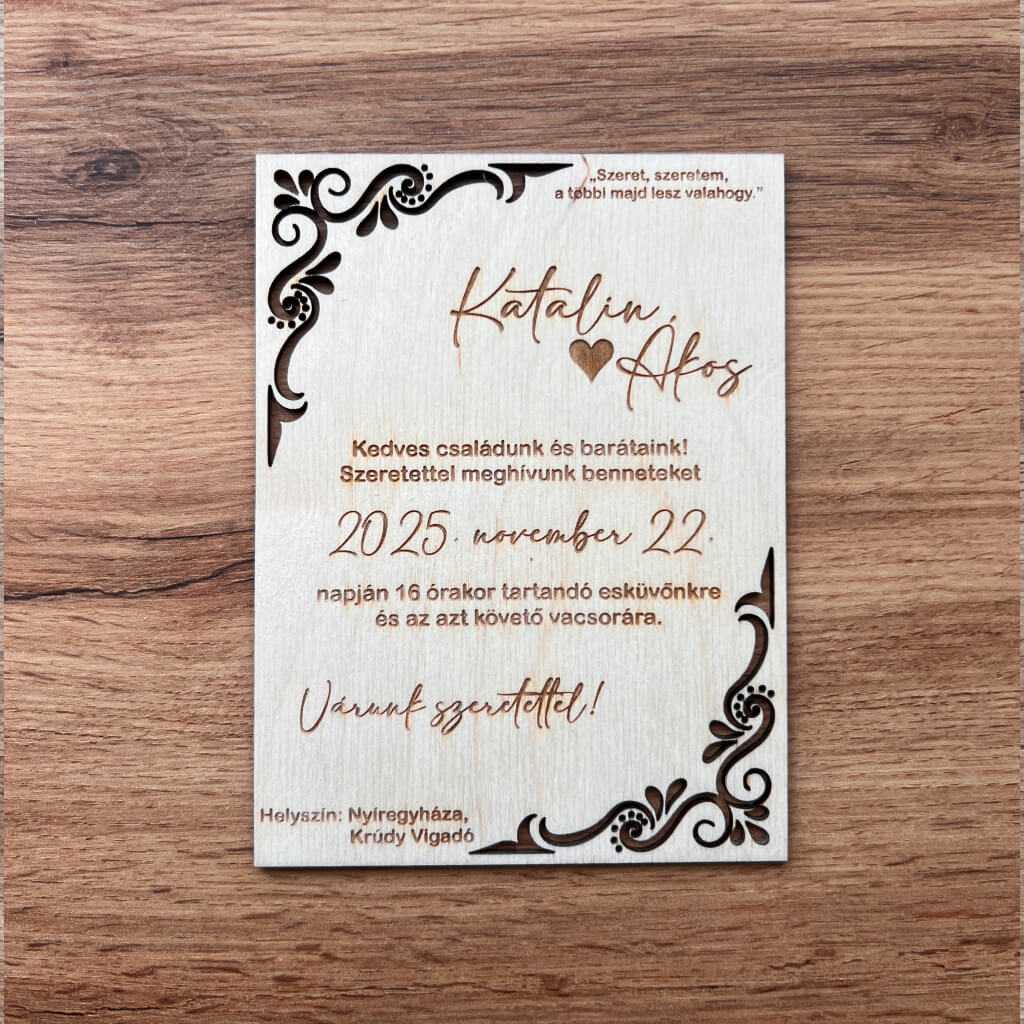 „Szeret, szeretem,
a többi majd lesz valahogy.”
Katalin
Ákos
Kedves családunk és barátaink!
Szeretettel meghívunk benneteket
2025. november 22.
napján 16 órakor tartandó esküvőnkre
és az azt követő vacsorára.
Várunk szeretettel!
Helyszín: Nyíregyháza,
Krúdy Vigadó